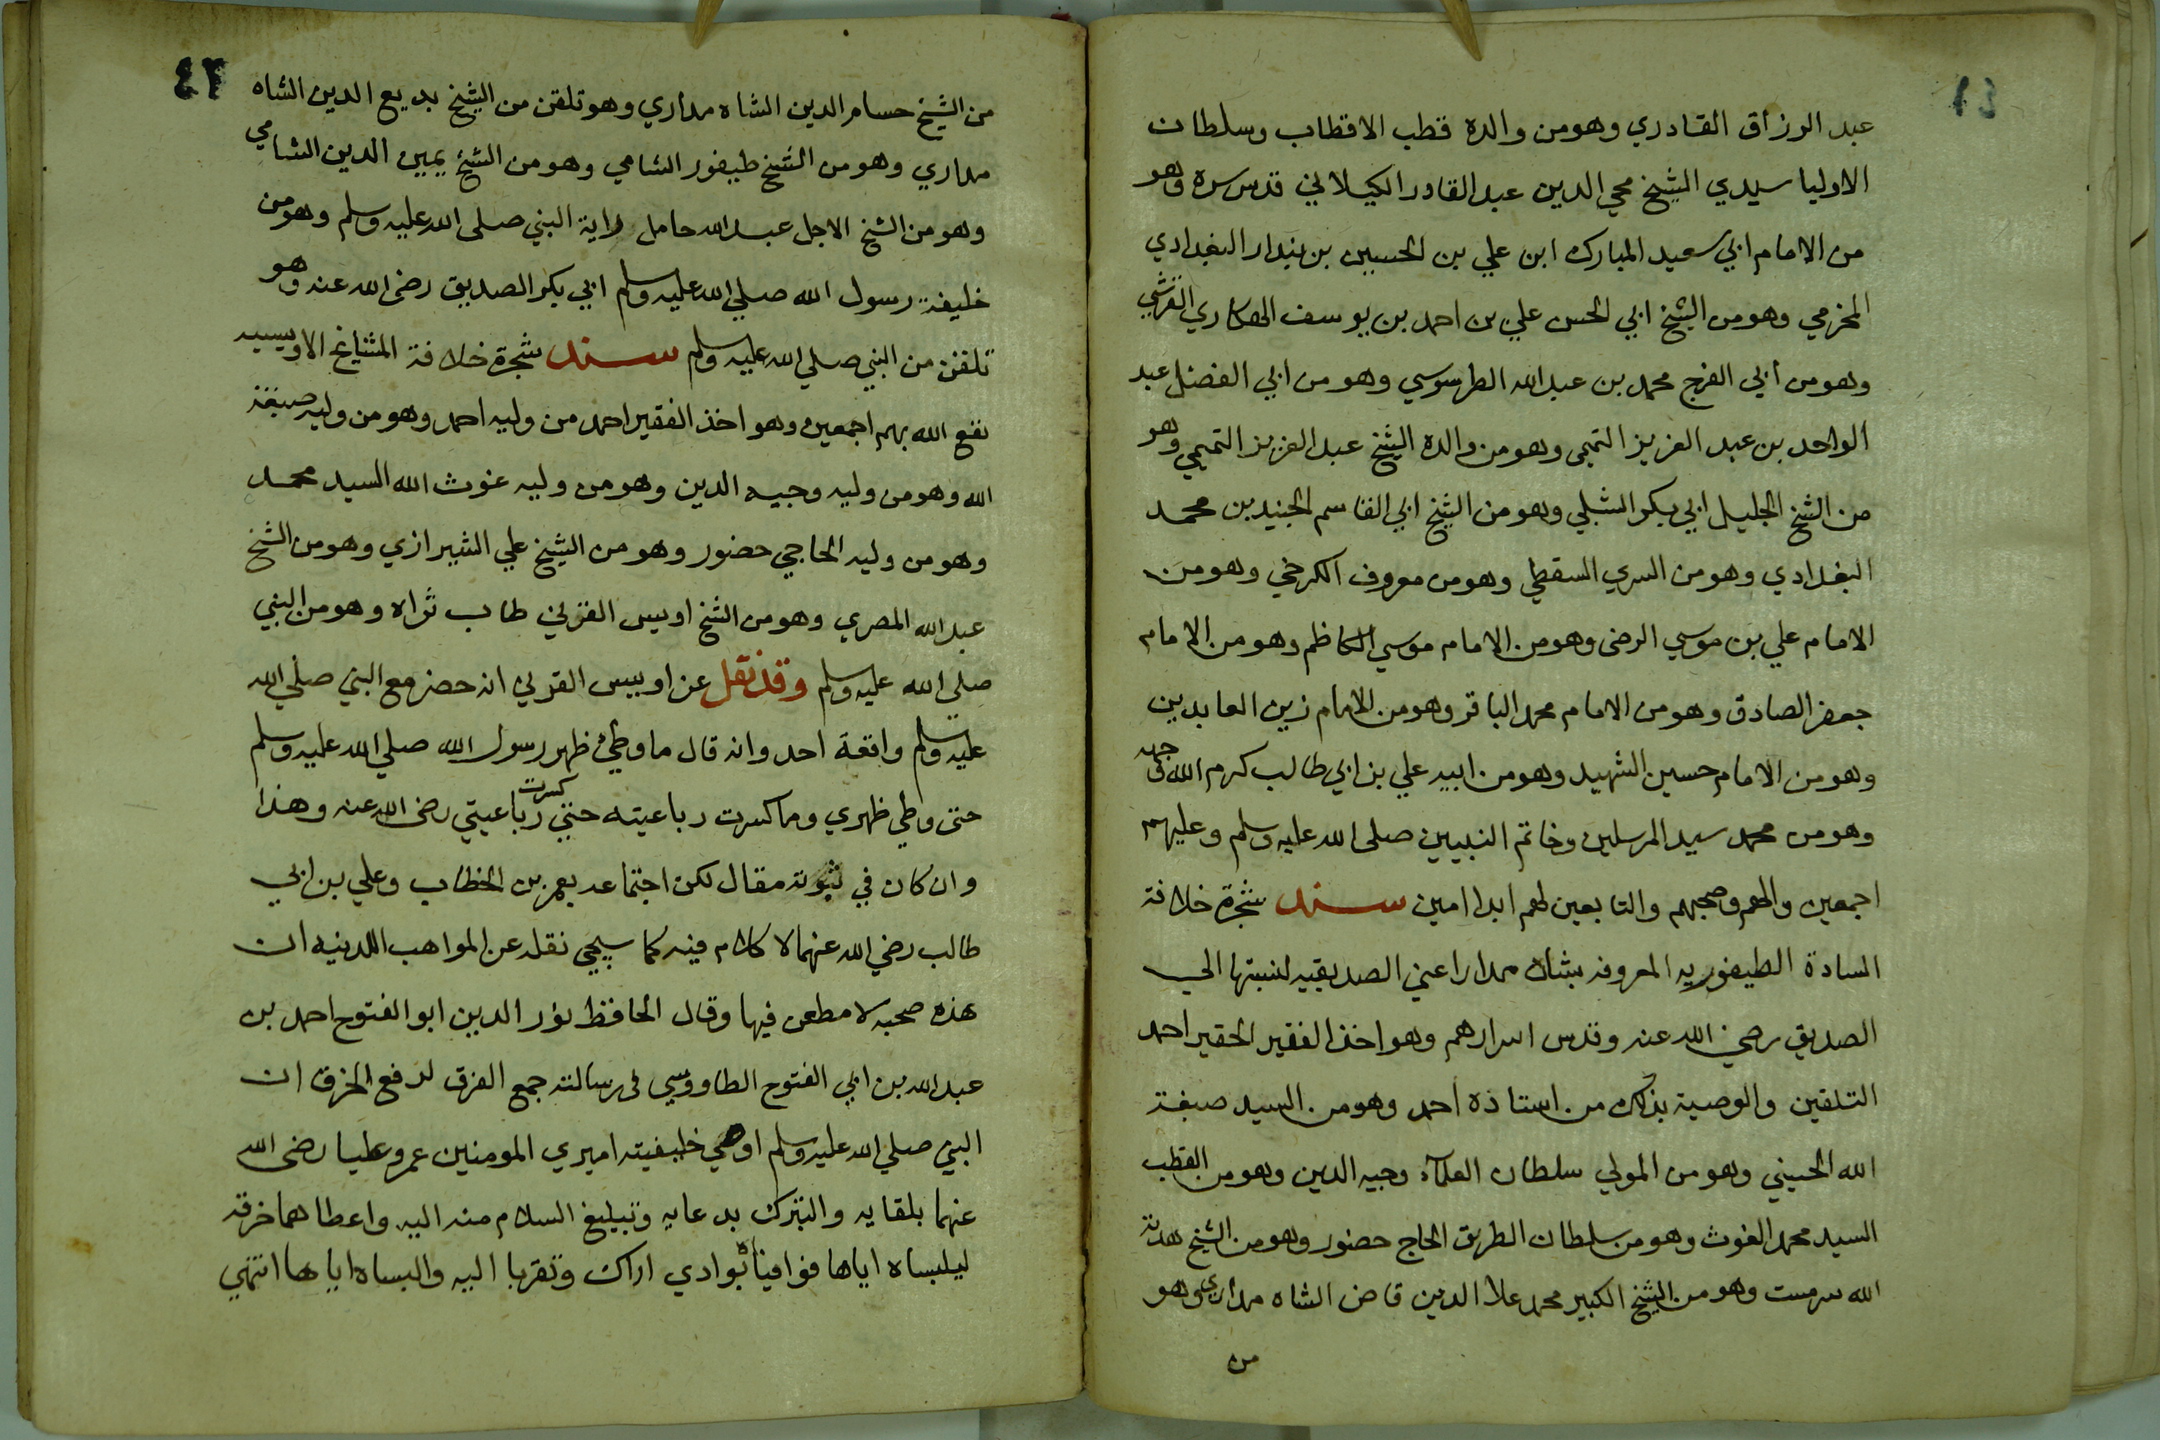 عبد الرزاق القادري وهو من والده قطب الاقطاب وسلطان
الاوليا سيدي الشيخ محي الدين عبد القادر الكيلاني قدس سره وهو
من الامام ابي سعيد المبارك ابن علي بن الحسين بن بندار البغدادي
المخزمي وهو من الشيخ ابي الحسن علي بن احمد بن يوسف الهكاري القرشي
وهو من أبي الفرج محمد بن عبد الله الطرسوسي وهو من ابي الفضل عبد
الواحد بن عبد العزيز التميمي وهو من والده الشيخ عبد العزيز التميمي وهو
من الشيخ الجليل ابي بكر الشبلي وهو من الشيخ ابي القاسم الجنيد بن محمد
البغدادي وهو من السري السقطي وهو من معروف الكرخي وهو من
الامام علي بن موسي الرضى وهو من الامام موسي الكاظم وهو من الامام
جعفر الصادق وهو من الامام محمد الباقر وهو من الامام زين العابدين
وهو من الامام حسين الشهيد وهو من ابيه علي بن ابي طالب كرم الله وجهه
وهو من محمد سيد المرسلين وخاتم النبيين صلى الله عليه وسلم وعليهم
اجمعين والهم وصحبهم والتابعين لهم ابدا امين سند شجرة خلافة
السادة الطيفوريه المعروفه بشاه مدار اعني الصديقيه لنسبتها الى
الصديق رضي الله عنه وقدس اسرارهم وهو اخذ الفقير الحقير احمد
التلقين والوصية بذلك من استاذه أحمد وهو من السيد صبغة
الله الحسيني وهو من المولي سلطان العلمآء وجيه الدين وهو من القطب
السيد محمد الغوث وهو من سلطان الطريق الحاج حضور وهو من الشيخ هدية
الله سرمست وهو من الشيخ الكبير محمد علا الدين قاض الشاه مداري وهو
من
٤٢
من الشيخ حسام الدين الشاه مداري وهو تلقن من الشيخ بديع الدين الشاه
مداري وهو من الشيخ طيفور الشامي وهو من الشيخ يمين الدين الشامي
وهو من الشيخ الاجل عبد الله حامل راية النبي صلى الله عليه وسلم وهو من
خليفة رسول الله صلي الله عليه وسلم ابي بكر الصديق رضى الله عنه وهو
تلقن من النبي صلي الله عليه وسلم سند شجرة خلافة المشايخ الاويسيه
نفع الله بهم اجمعين وهو اخذ الفقير احمد من وليه احمد وهو من وليه صبغة
الله وهو من وليه وجيه الدين وهو من وليه غوث الله السيد محمد
وهو من وليه الحاجي حضور وهو من الشيخ علي الشيرازي وهو من الشيخ
عبد الله المصري وهو من الشيخ اويس القرني طاب ثراه وهو من النبي
صلى الله عليه وسلم وقد نقل عن اويس القرني انه حضر مع النبي صلي الله
عليه وسلم واقعة احد وانه قال ما وطئ ظهر رسول الله صلي الله عليه وسلم
حتى وطي ظهري وما كسرت رباعيته حتي كسرت رباعيتي رضى الله عنه وهذا
وان كان في ثبوته مقال لكن اجتماعه بعمر بن الخطاب وعلي بن ابي
طالب رضي الله عنهما لا كلام فيه كما سيجي نقله عن المواهب اللدنيه ان
هذه صحبه لا مطعن فيها وقال الحافظ نور الدين ابو الفتوح احمد بن
عبد الله بن ابي الفتوح الطاووسي في رسالته جمع الفرق لدفع الخرق ان
النبي صلي الله عليه وسلم اوصي خليفيته اميري المومنين عمر وعليا رضى الله
عنهما بلقايه والتبرك بدعايه وتبليغ السلام منه اليه واعطاهما خرقه
ليلبساه اياها فوافياه بوادي اراك وتقربا اليه والبساه اياها انتهي